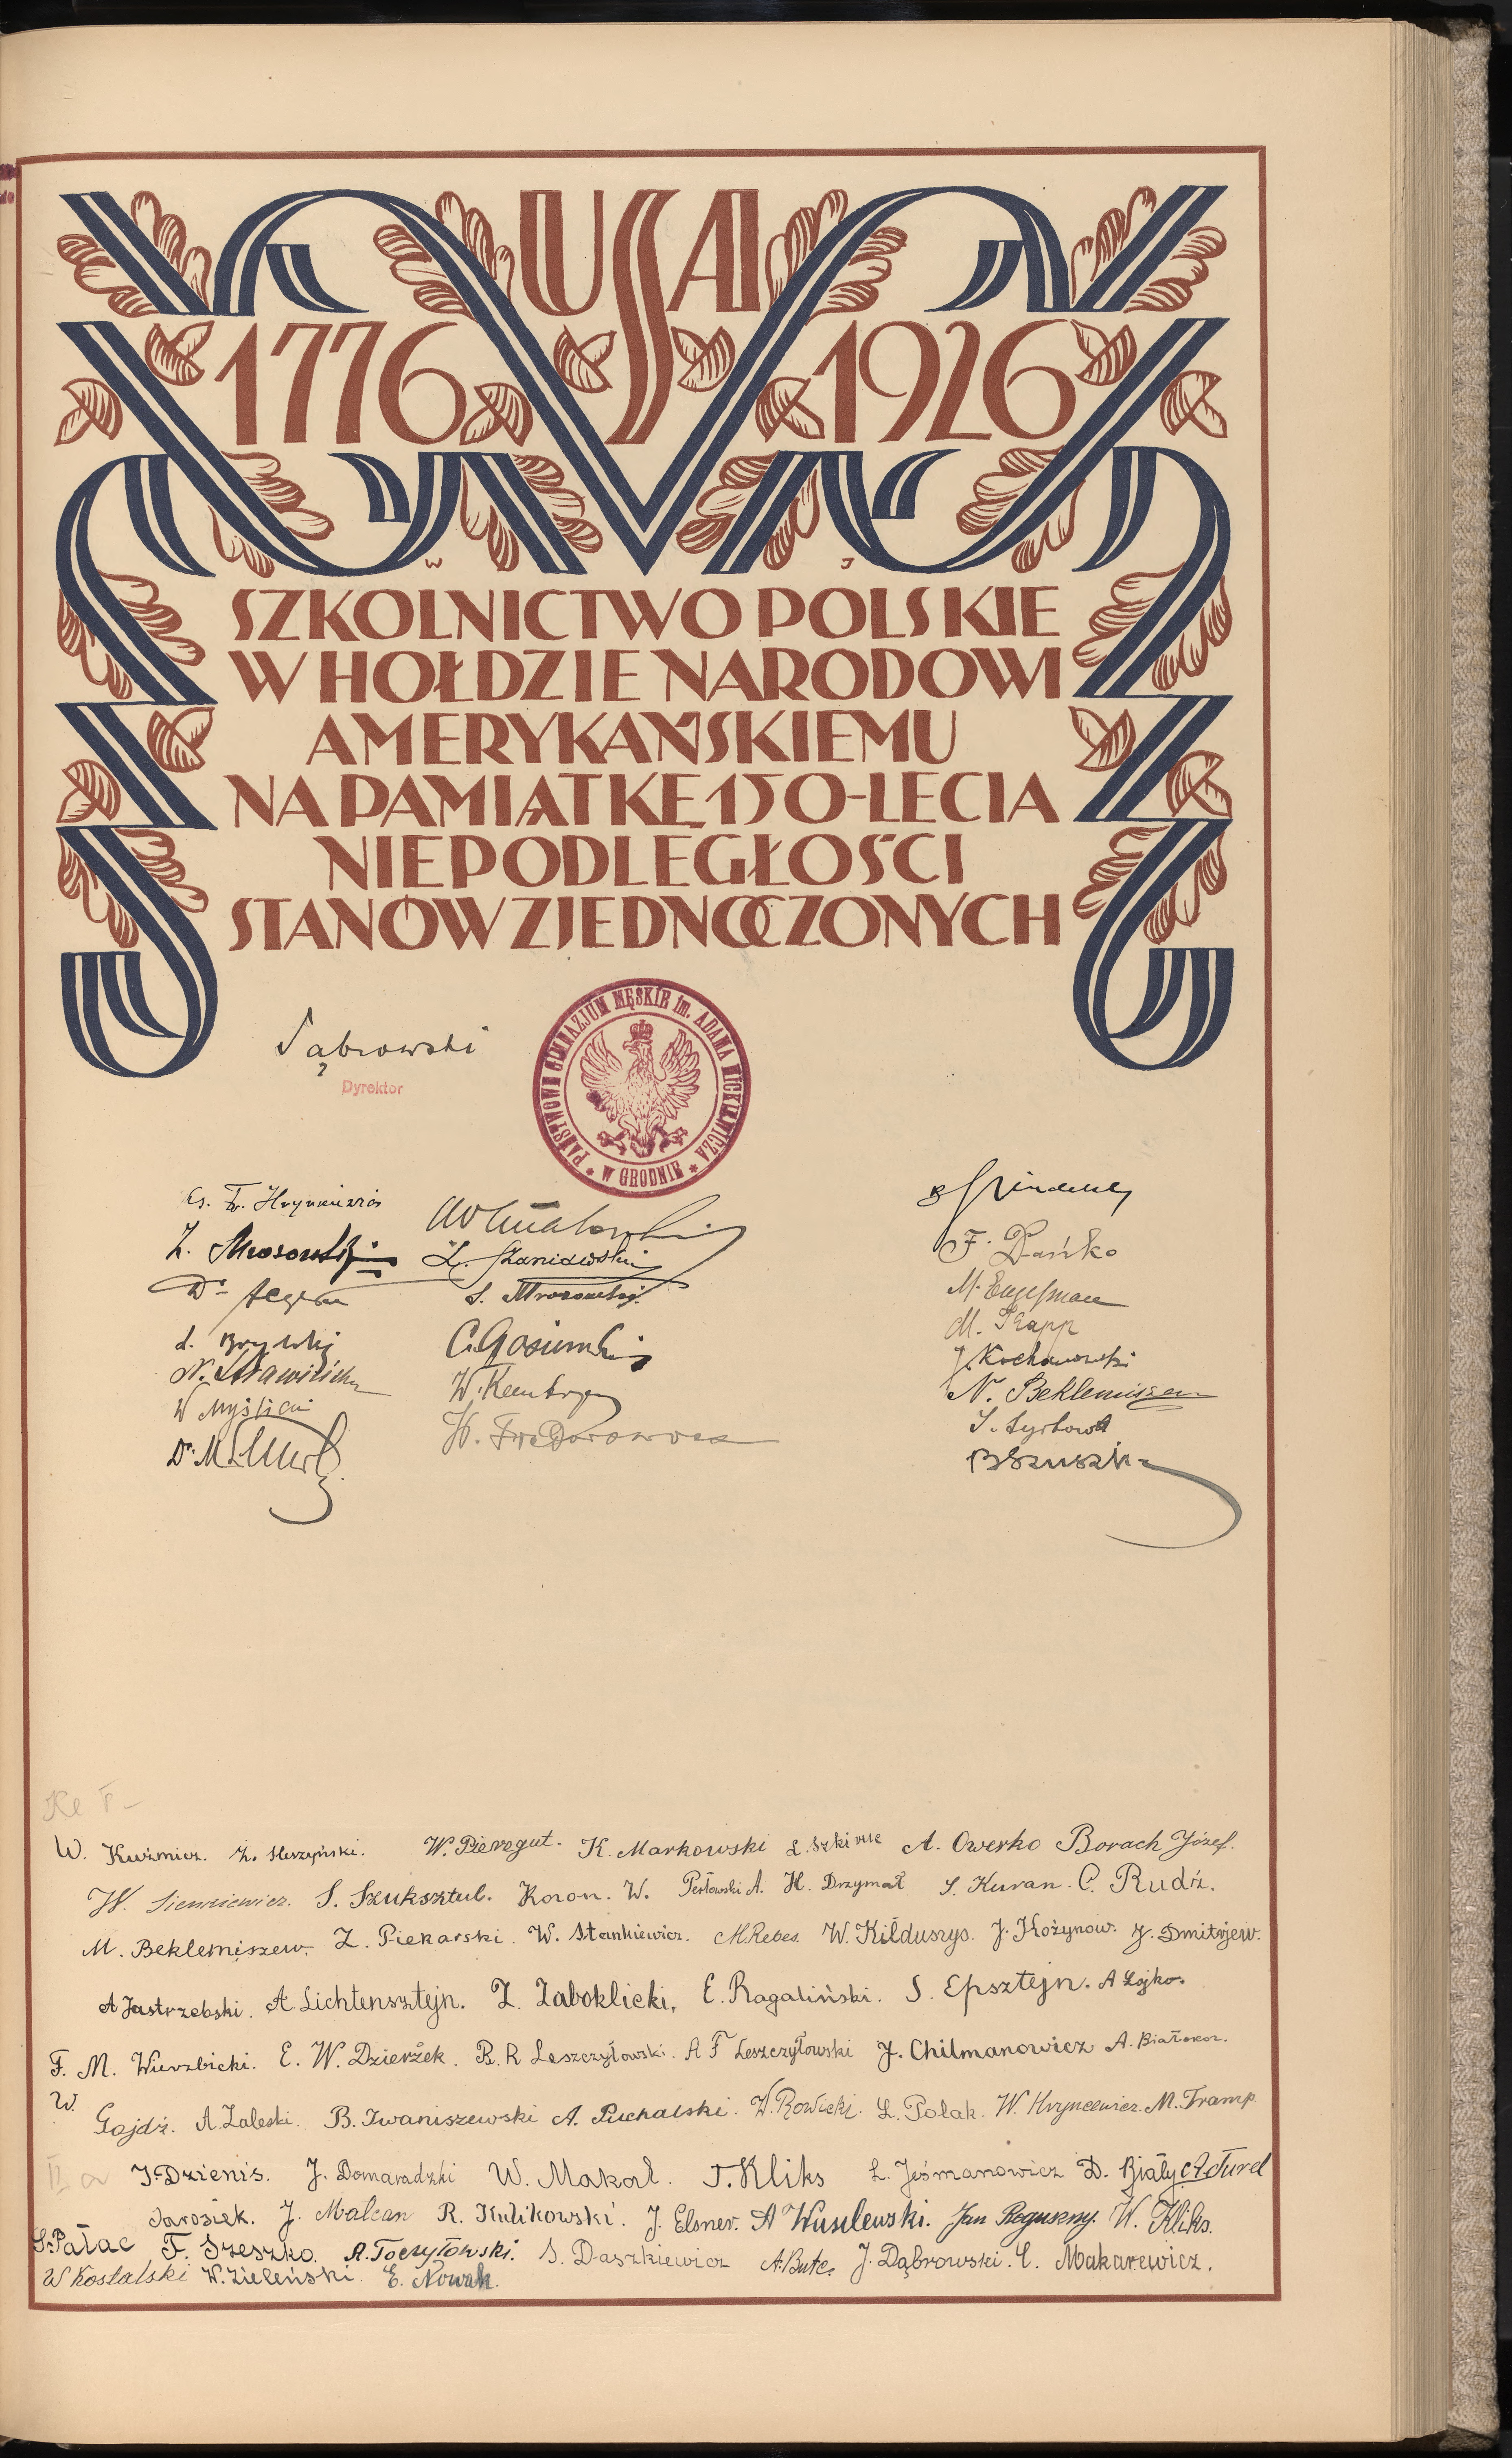 USA
1776 1926
W J
SZKOLNICTWO POLSKIE
W HOŁDZIE NARODOWI
AMERYKAŃSKIEMU
NA PAMIĄTKĘ 150-LECIA
NIEPODLEGŁOŚCI
STANÓW ZJEDNOCZONYCH
Dąbrowski
Dyrektor
PAŃSTWOWE GIMNAZJUM MĘSKIE im. ADAMA MICKIEWICZA
* W GRODNIE *
F. Dańko
L. Staniewski
S. Mrozowski
M. Engelman
M. Trapp
J. Kochanowski
N. Beklemiszew
W Myślicki
Kl I
W. Kuźmicz. W. Pieregut. K. Markowski A. Owerko Borach Józef.
W. Sienkiewicz. S. Szuksztul. Koron. W. Perłowski A. H. Drzymał S. Kuran. C. Rudź.
M. Beklemiszew. Z. Piekarski. W. Stankiewicz. M. Rebes W. Kiłduszys. J. Kożynow. J. Dmitrjew.
A Jastrzębski. A. Lichtensztejn. Z. Zaboklicki, E. Ragaliński. S. Epsztejn. A Łojko.
F. M. Wierzbicki. E. W. Dzierżek. R. R Leszczyłowski. A F Leszczyłowski J. Chilmanowicz A. Białokoz.
W.
Gojdź. A. Zaleski. B. Iwaniszewski A. Puchalski. W. Rowicki. L. Polak. W. Hryncewicz. M. Tramp
II a J. Dzienis. J. Domaradzki W. Makal. T. Kliks L. Jeśmanowicz D. Biały A. Turel
Jarosiek. J. Malcan R. Kulikowski. J. Elsner. A Wasilewski. Jan Roguszny. W. Kliks.
S. Pałac F. Szeszko. A. Toczyłowski. S. Daszkiewicz A. Butc. J. Dąbrowski. E. Makarewicz.
W Kostalski W. Zieleński. E. Nowak.